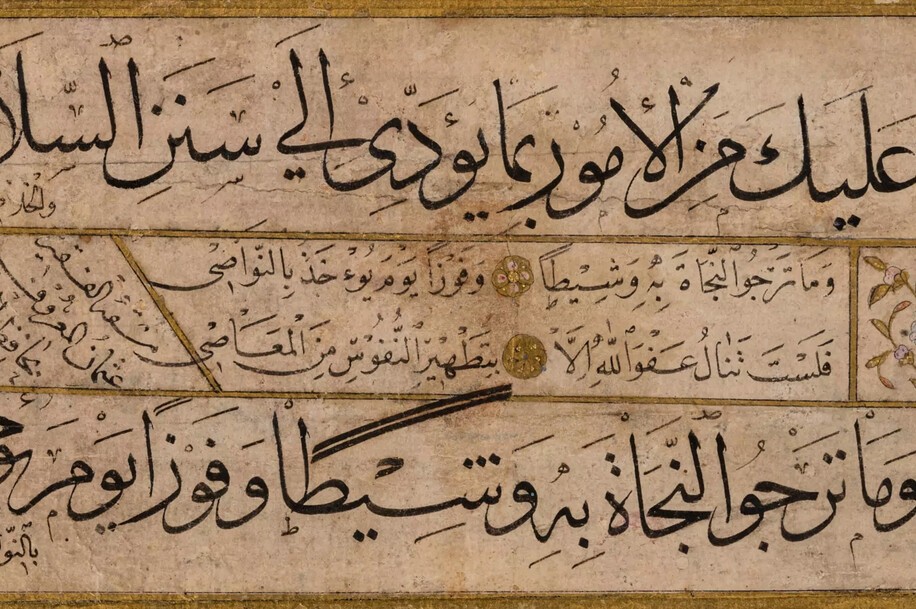 عَلَيكَ مِنَ الأُمُورِ بِمَا يُؤَدِّي إِلَى سَنَنِ السَّلا
وَالخَلاَ
وَمَا تَرْجُو النَّجَاةَ بِهِ وَشِيْطًا وَفَوْزًا يَوْمَ يُؤْخَذُ بِالنَّوَاصِي
فَلَسْتَ تَنَالُ عَفْوَ اللّٰهِ إِلَّا بِتَطْهِيْرِ النُّفُوْسِ مِنَ الْمَعَاصِي
وَمَا تَرْجُو النَّجَاةَ بِهِ وَشِيْطًا وَفَوْزًا يَوْمَ
بِالنَّوَا